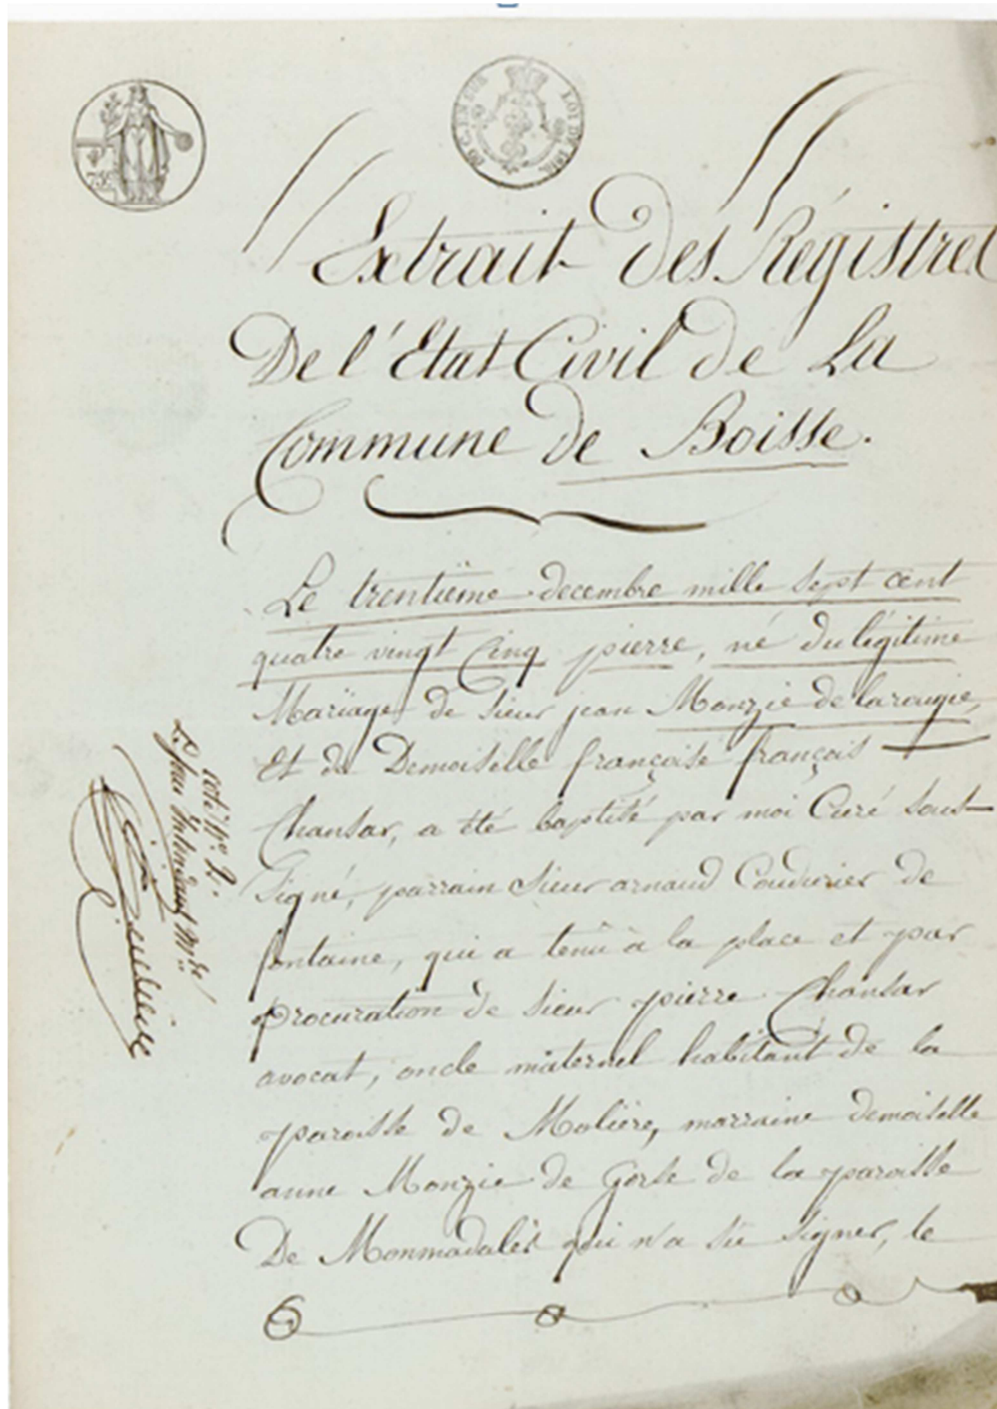 75c
Extrait des Régistres
De l'Etat Civil de La
Commune de Boisse.
Le trentième decembre mille sept cent
quatre vingt Cinq pierre, né du légitime
Mariage de sieur jean Monzie de laraugie,
Et de Demoiselle françoise françois
Chansar, a été baptisé par moi Curé sous-
Signé, parrain sieur arnaud Coudurier de
fontaine, qui a tenû à la place et par
procuration de sieur pierre Chansar
avocat, oncle maternel habitant de la
paroisse de Molière, marraine demoiselle
anne Monzie de Gorse de la paroisse
De Monmadalès qui n'a sû signer, le
coté N.º 2.
Le Sous Intendant M.re